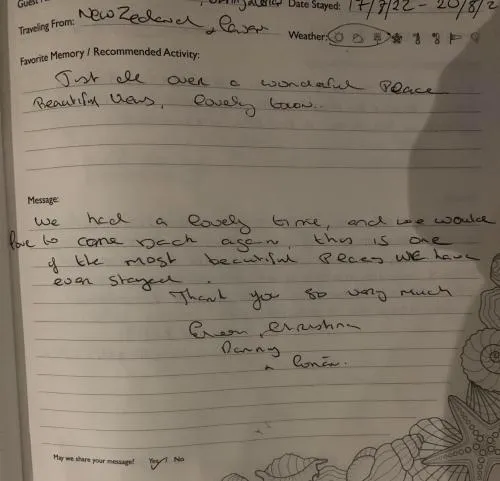 Date Stayed: 17/8/22 - 20/8/2
Traveling From: New Zealand &
Weather:
Favorite Memory / Recommended Activity:
Just all over a wonderful Place
Beautiful Views, lovely town..
Message:
We had a lovely time, and we would
love to come back again, this is one
of the most beautiful Places we have
ever stayed.
Thank you so very much
Danny
& Conān.
May we share your message? Yes ✓ No